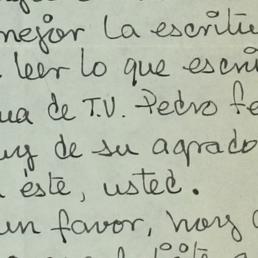 mejor la escritu
leer lo que escri
ua de T.V. Pedro fe
uy de su agrado
éste, usted.
un favor, hoy